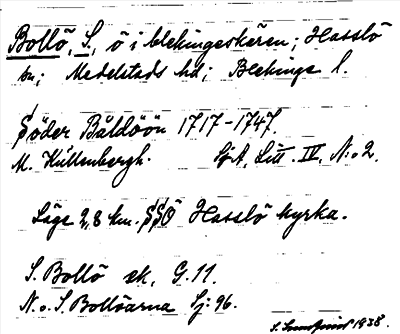 Bollö, S., ö i blekingeskären; Hasslö
sn; Medelstads hd; Blekinge l.
Söder Båldöön 1717-1747.
M. Källenbergh. Sj.A. Litt. IV, N:o 2.
Läge 2,8 km. SSÖ Hasslö kyrka.
S. Bollö ek. G. 11.
N. o. S. Bollöarna Sj: 96.
1938.